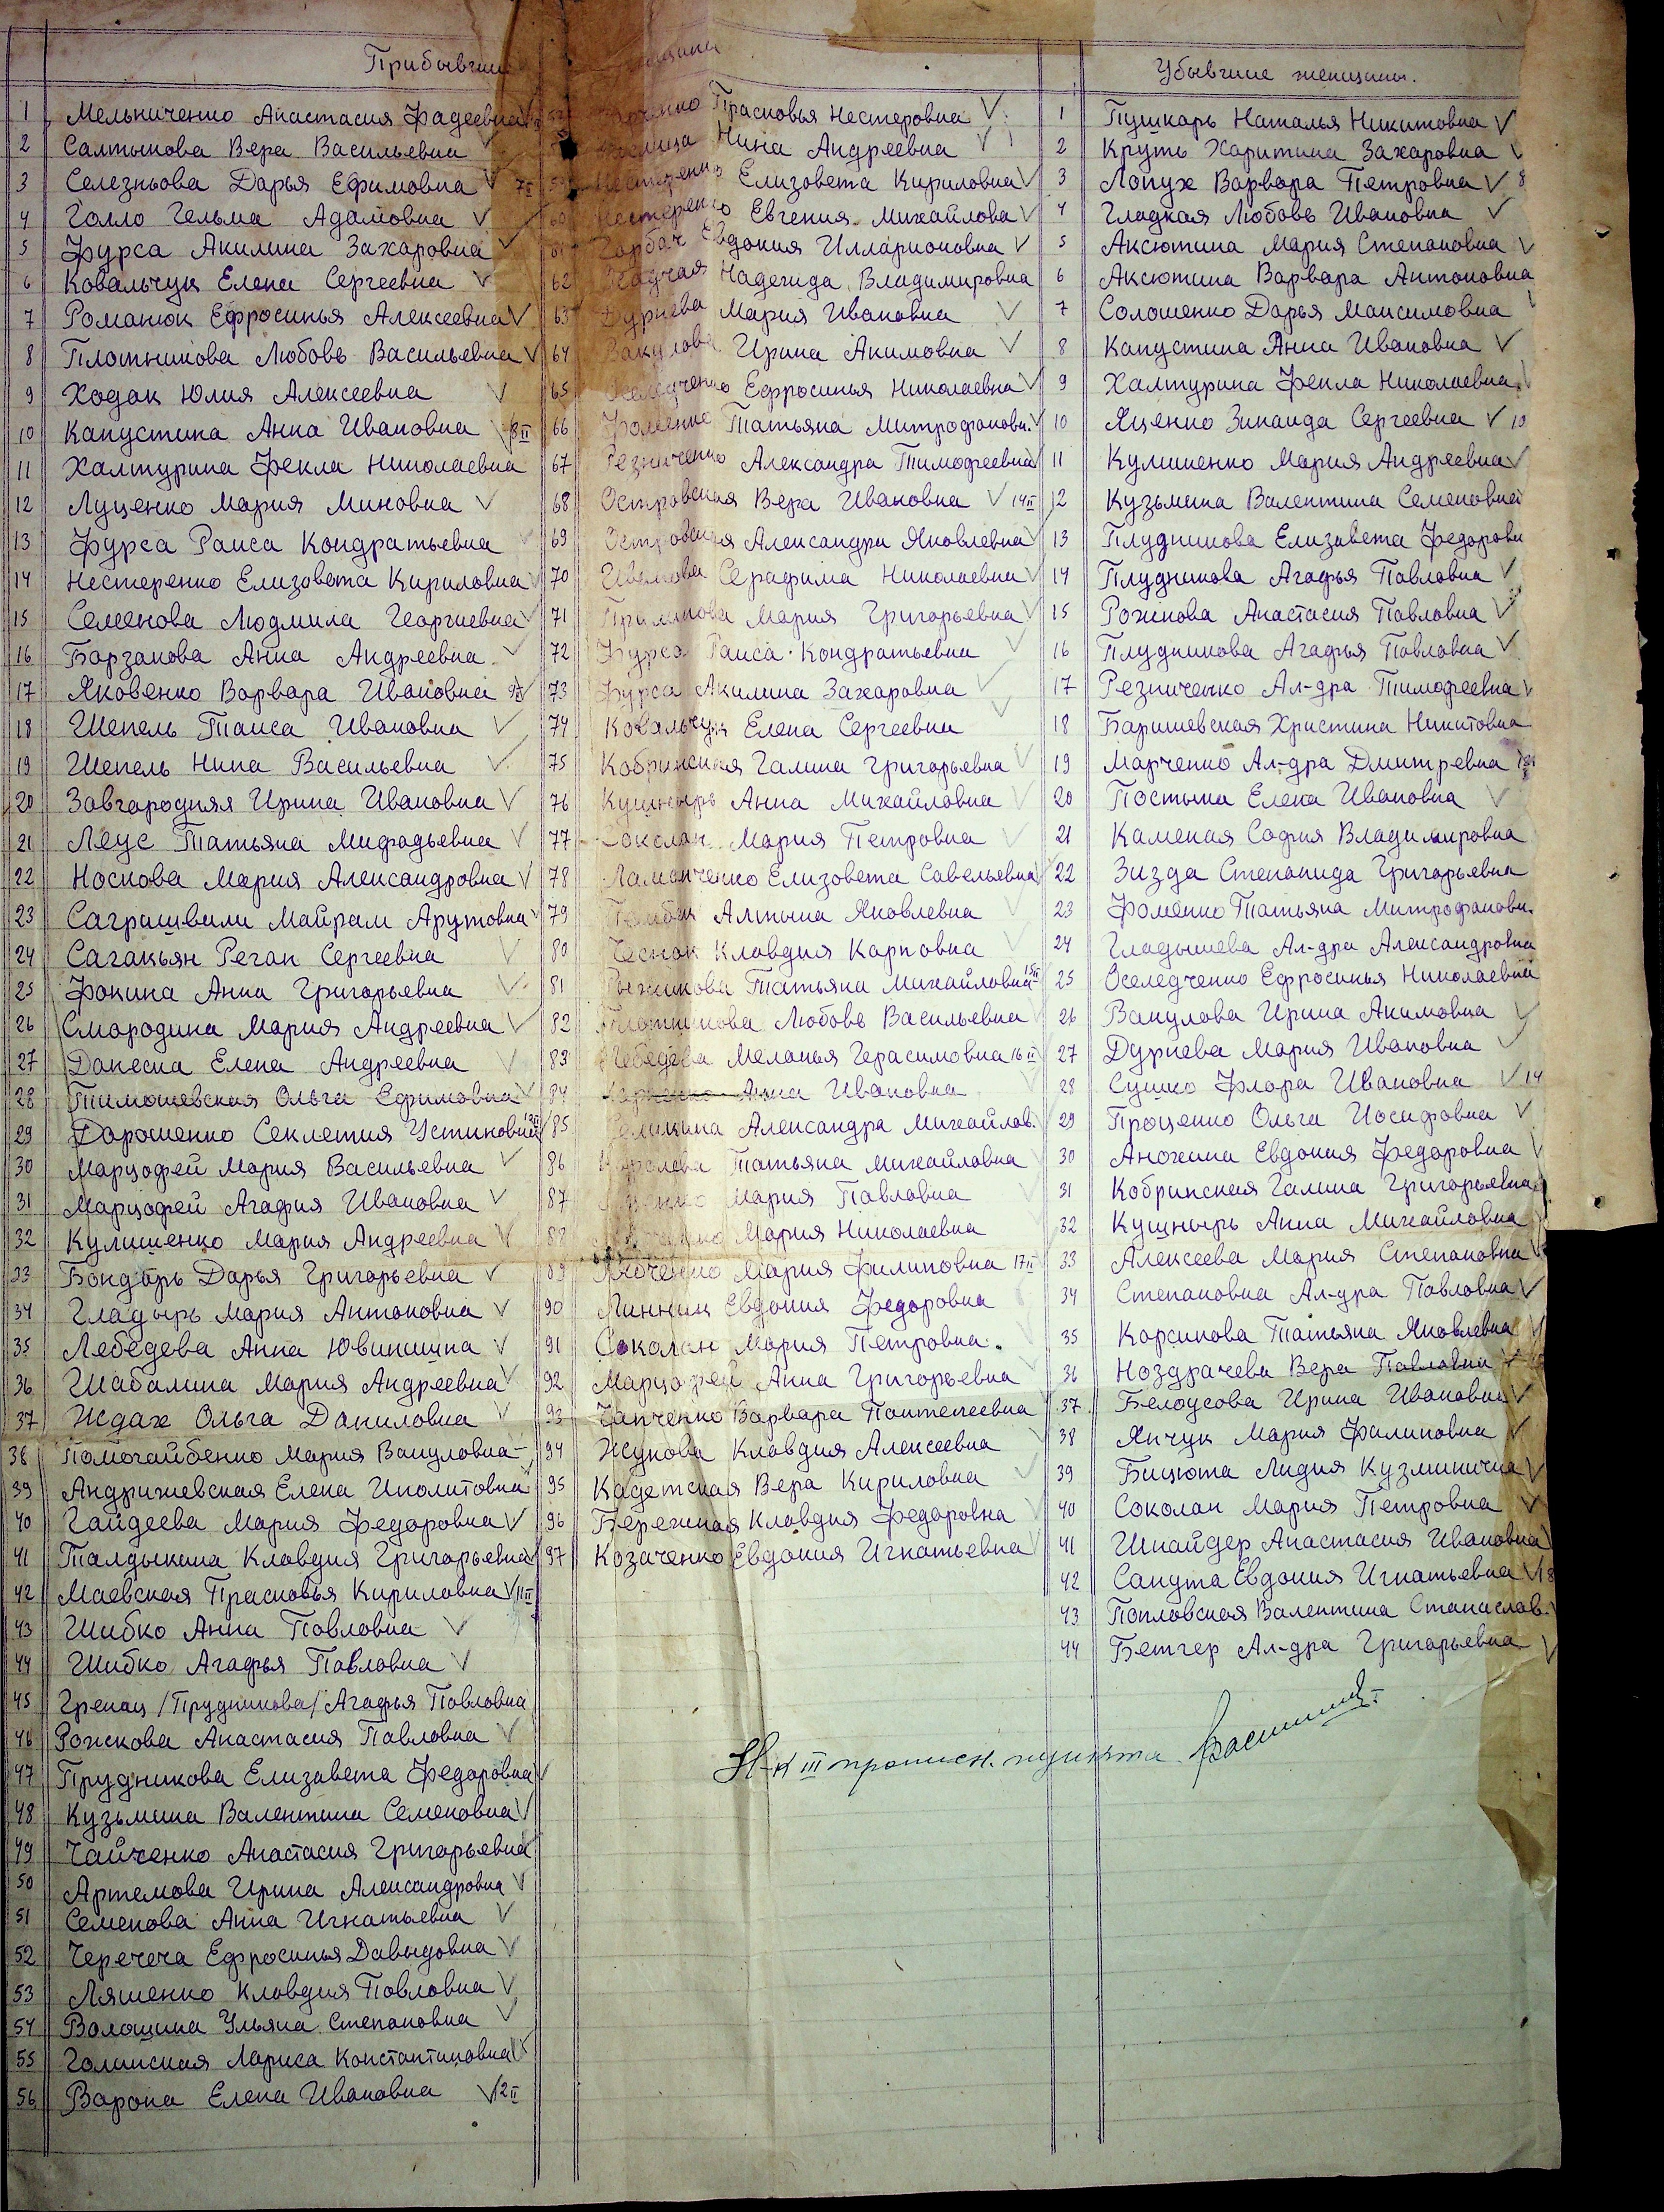 Прибывшие
1 Мельниченко Анастасия Фадеевна
2 Салтыкова Вера Васильевна
3 Селезньова Дарья Ефимовна
4 Голло Гельма Адамовна
5 Фурса Акилина Захаровна
6 Ковальчук Елена Сергеевна
7 Романюк Ефросинья Алексеевна
8 Плотникова Любовь Васильевна
9 Ходак Юлия Алексеевна
10 Капустина Анна Ивановна 8 II
11 Халтурина Фекла Николаевна
12 Луценко Мария Миновна
13 Фурса Раиса Кондратьевна
14 Нестеренко Елизовета Кириловна
15 Семенова Людмила Георгиевна
16 Борзакова Анна Андреевна
17 Яковенко Ворвора Ивановна
18 Шепель Таиса Ивановна
19 Шепель Нина Васильевна
20 Завгородняя Ирина Ивановна
21 Леус Татьяна Мифадьевна
22 Носкова Мария Александровна
23 Саграшвили Майрам Арутовна
24 Сагакьян Реган Сергеевна
25 Фокина Анна Григорьевна
26 Смородина Мария Андреевна
27 Данесна Елена Андреевна
28 Тимошевская Ольга Ефимовна
29 Дорошенко Секлетия Устиновна
30 Марцофей Мария Васильевна
31 Марцофей Агафия Ивановна
32 Кулишенко Мария Андреевна
33 Бондарь Дарья Григорьевна
34 Гладырь Мария Антоновна
35 Лебедева Анна
36 Шабалина Мария Андреевна
37 Ждах Ольга Даниловна
38 Помогайбенко Мария Вакуловна
39 Андрижевская Елена Иполитовна
40 Гайдеева Мария Федоровна
41 Талдыкина Клавдия Григорьевна
42 Маевская Прасковья Кириловна 11 II
43 Шибко Анна Павловна
44 Шибко Агафья Павловна
45 Гренац /Прудникова/ Агафья Павловна
46 Рожкова Анастасия Павловна
47 Прудникова Елизавета Федоровна
48 Кузьмина Валентина Семеновна
49 Чайченко Анастасия Григорьевна
50 Артемова Ирина Александровна
51 Семенова Анна Игнатьевна
52 Черечеча Ефросинья Давыдовна
53 Ляшенко Клавдия Павловна
54 Волошина Ульяна Степановна
55 Голинская Лариса Константиновна
56 Варона Елена Ивановна 12 II
Прасковья Нестеровна
Нина Андреевна
Нестеренко Елизовета Кириловна
Нестеренко Евгения Михайлова
61 Горбач Евдокия Илларионовна
62 Надежда Владимировна
63 Дурнева Мария Ивановна
64 Вакулова Ирина Акимовна
65 Оселедченко Ефросинья Николаевна
66 Фоменко Татьяна Митрофановн.
67 Резниченко Александра Тимофеевна
68 Островская Вера Ивановна 14 II
69 Островская Александра Яковлевна
70 Иванова Серафима Николаевна
71 Мария Григорьевна
72 Фурса Раиса Кондратьевна
73 Фурса Акилина Захаровна
74 Ковальчук Елена Сергеевна
75 Кобринская Галина Григорьевна
76 Кушнырь Анна Михайловна
77 Соколан Мария Петровна
78 Ламанченко Елизовета Савельевна
79 Алтына Яковлевна
80 Чеснок Клавдия Карповна
81 Рыжикова Татьяна Михайловна 15 II
82 Плотникова Любовь Васильевна
83 Лебедева Меланья Герасимовна 16 II
84 Анна Ивановна
85 Александра Михайлов.
86 Королева Татьяна Михайловна
87 Мария Павловна
88 Мария Николаевна
89 Мария Филиповна 17 II
90 Линник Евдокия Федоровна
91 Соколан Мария Петровна.
92 Марцофей Анна Григорьевна
93 Ганченко Варвара Пантелеевна
94 Жукова Клавдия Алексеевна
95 Кадетская Вера Кириловна
96 Бережная Клавдия Федоровна
97 Козаченко Евдокия Игнатьевна
Убывшие женщины.
1 Пушкарь Наталья Никитовна
2 Круть Харитина Захаровна
3 Лопух Варвара Петровна 8
4 Гладкая Любовь Ивановна
5 Аксютина Мария Степановна
6 Аксютина Варвара Антоновна
7 Солошенко Дарья Максимовна
8 Капустина Анна Ивановна
9 Халтурина Фекла Николаевна
10 Яценко Зинаида Сергеевна 10
11 Кулишенко Мария Андреевна
12 Кузьмина Валентина Семеновна
13 Плудникова Елизавета Федоровн
14 Плудникова Агафья Павловна
15 Рожкова Анастасия Павловна
16 Плудникова Агафья Павловна
17 Резниченко Ал-дра Тимофеевна
18 Баришевская Христина Никитовна
19 Марченко Ал-дра Дмитревна
20 Постына Елена Ивановна
21 Каменая София Владимировна
22 Зизда Степанида Григорьевна
23 Фоменко Татьяна Митрофановн.
24 Гладышева Ал-дра Александровна
25 Оселедченко Ефросинья Николаевна
26 Вакулова Ирина Акимовна
27 Дурнева Мария Ивановна
28 Сушко Флора Ивановна 14
29 Проценко Ольга Иосифовна
30 Анохина Евдокия Федоровна
31 Кобринская Галина Григорьевна
32 Кушнырь Анна Михайловна
33 Алексеева Мария Степановна
34 Степановна Ал-дра Павловна
35 Корсикова Татьяна Яковлевна
36 Ноздрачева Вера Павловна
37 Белоусова Ирина Ивановна
38 Янчук Мария Филиповна
39 Бицюта Лидия Кузминична
40 Соколан Мария Петровна
41 Шнайдер Анастасия Ивановна
42 Сапута Евдокия Игнатьевна 18
43 Попловская Валентина Станислав.
44 Бетгер Ал-дра Григорьевна
Н-к III прописн. пункта